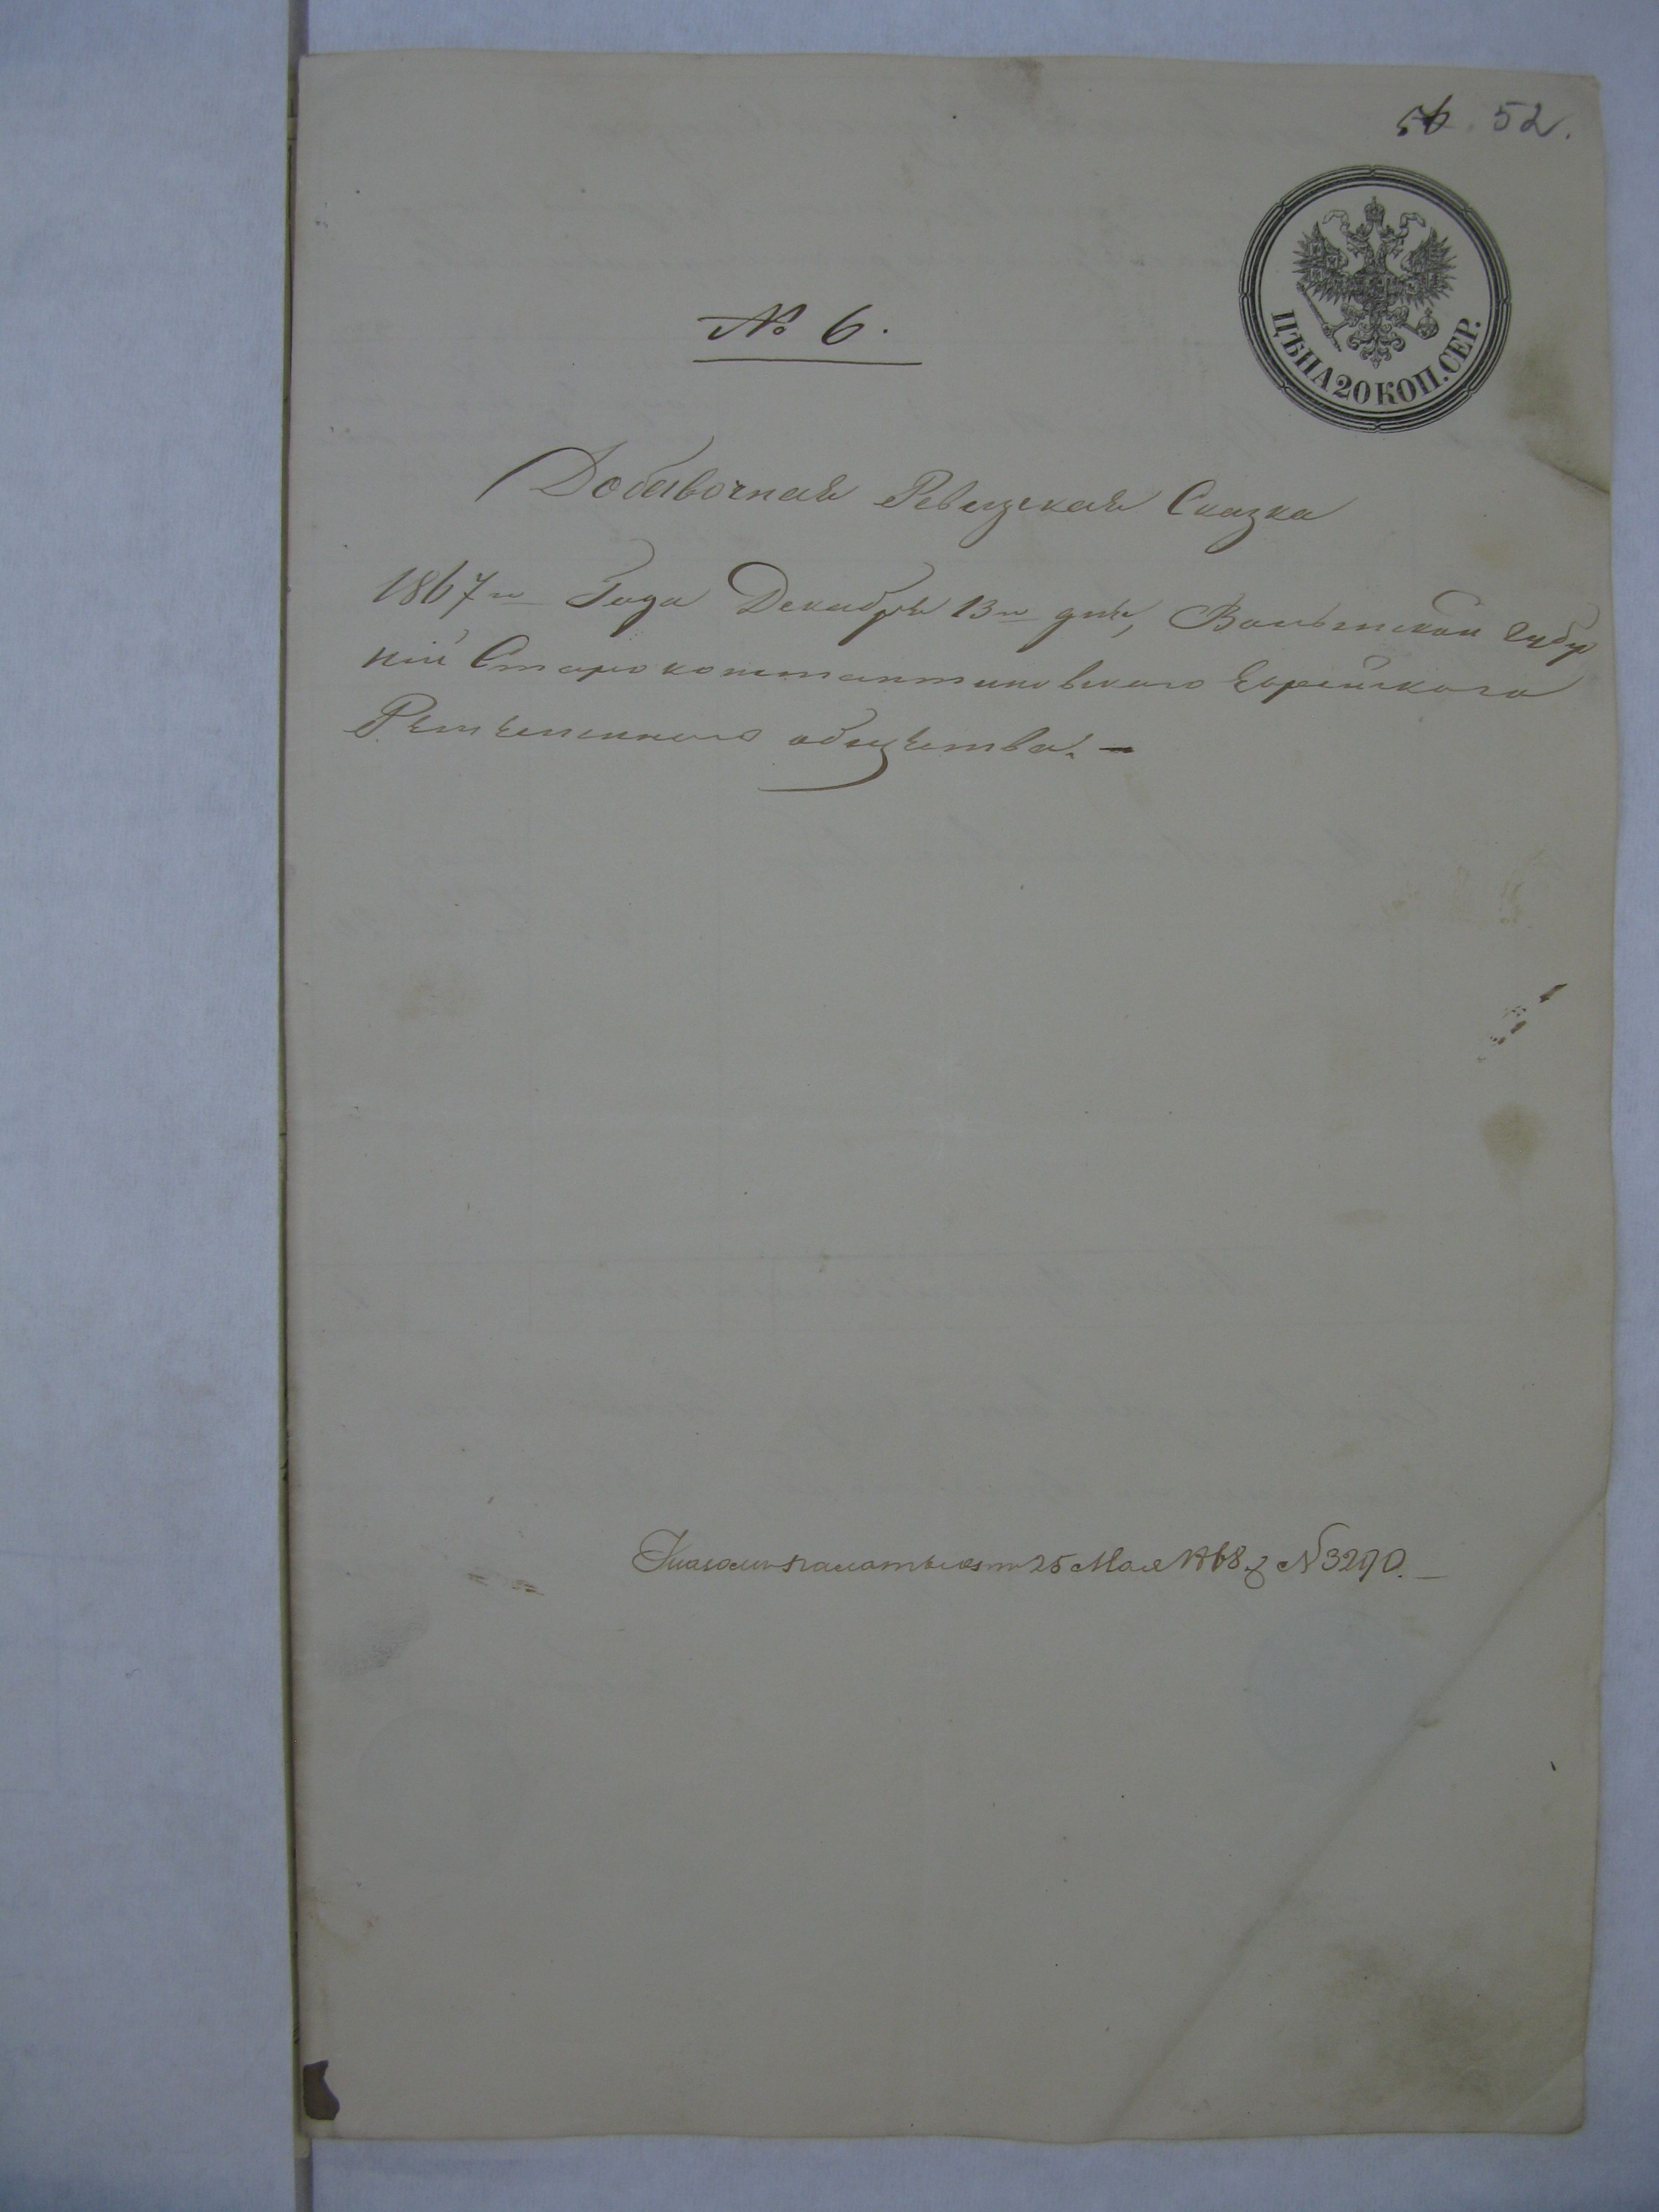 56. 52.
ЦѢНА 20 КОП. СЕР.
№ 6.
Добавочная Ревизская Сказка
1867го Года Декабря 13го дня, Волынской Губер
ніи Староконстантиновского Еврейского
Ремесленного общества. —
25 Мая 1868 г № 3290. —